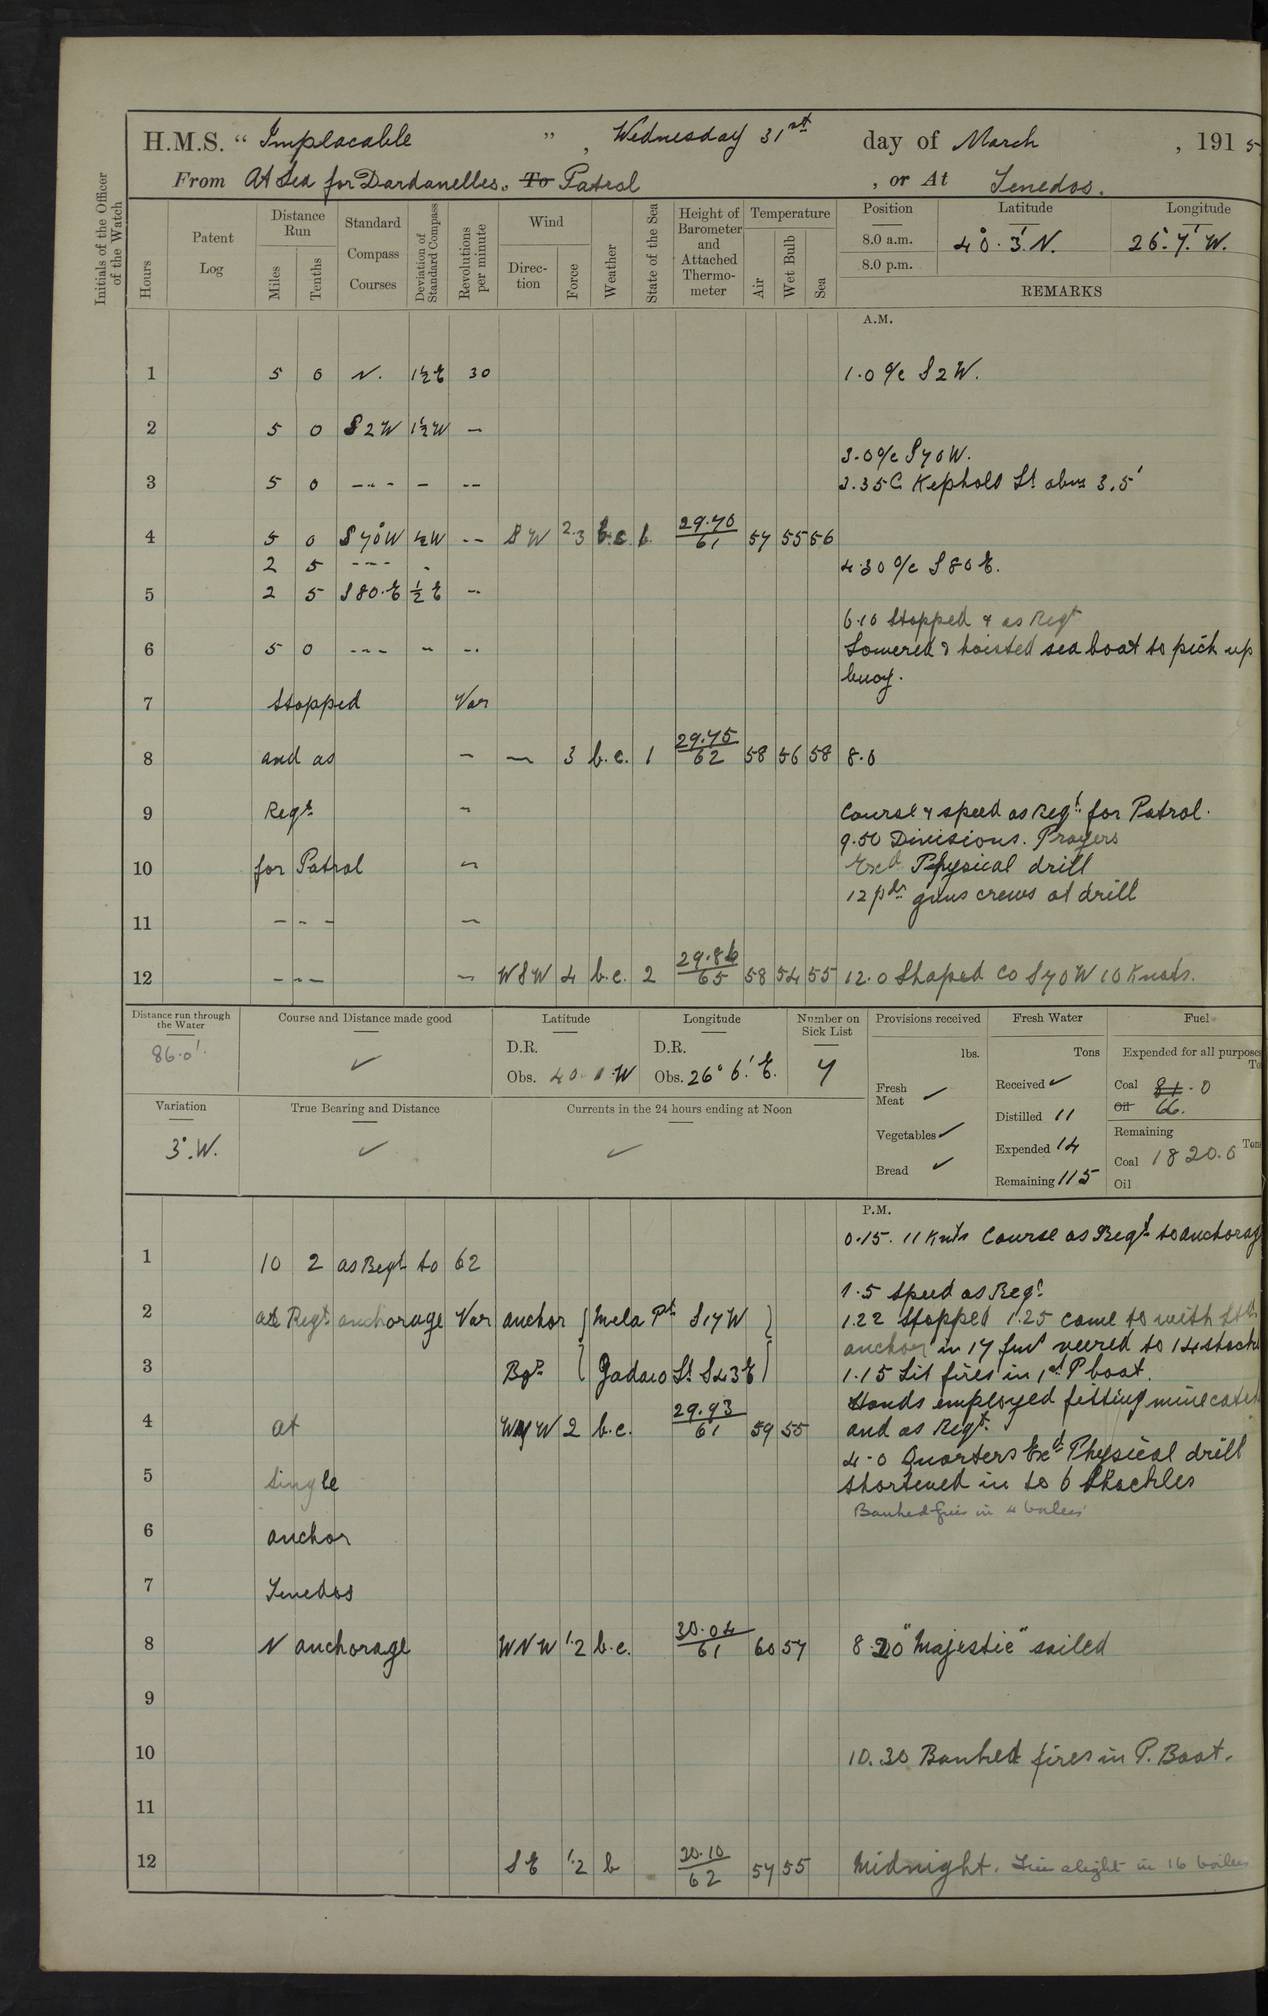 H.M.S. “ Implacable ” , Wednesday 31st day of March , 1915
From At Sea for Dardanelles. To Patrol , or At Tenedos.
Initials of the Officer of the Watch
Hours Patent Log Distance Run Miles Tenths Standard Compass Courses Deviation of Standard Compass Revolutions per minute Wind Direction Force Weather State of the Sea Height of Barometer and Attached Thermometer Temperature Air Wet Bulb Sea Position Latitude Longitude
8.0 a.m. 40° 3' N. 26° 7' W.
8.0 p.m.
REMARKS
A.M.
1 5 0 N. 1½ E 30 1.0 a/c S 2 W.
2 5 0 S 2 W 1½ W —
3.0 a/c S 70 W.
3 5 0 --- - -- 3.35 C. Kephalo Lt abm 3.5'
4 5 0 S 70° W ½ W -- S W 2.3 b.c. 1. 29.70/61 57 55 56
2 5 --- - 4.30 a/c S 80 E.
5 2 5 S 80.E ½ E --
6.10 Stopped & as Reqt
6 5 0 --- - -- Lowered & hoisted sea boat to pick up
buoy.
7 Stopped Var
8 and as - — 3 b.c. 1 29.75/62 58 56 58 8.0
9 Reqte - Course & speed as Reqt for Patrol.
9.50 Divisions. Prayers
10 for Patrol - Exd Physical drill
12 pdr guns crews at drill
11 - - - -
12 - - - - W S W 4 b.c. 2 29.86/65 58 54 55 12.0 Shaped Co S 70 W 10 Knots.
Distance run through the Water 86.0'
Course and Distance made good ✓
Latitude D.R. Obs. 40 W
Longitude D.R. Obs. 26° 6' E.
Number on Sick List 7
Provisions received lbs. Fresh Meat ✓ Vegetables ✓ Bread ✓
Fresh Water Tons Received ✓ Distilled 11 Expended 14 Remaining 115
Fuel Expended for all purposes Coal 81.0 Oil 66.
Remaining Coal 1820.0 Tons Oil
Variation 3°.W.
True Bearing and Distance ✓
Currents in the 24 hours ending at Noon ✓
P.M.
0.15. 11 Knts Course as Reqt to anchorag
1 10 2 as Reqt to 62
1.5 Speed as Reqt
2 as Reqt anchorage Var anchor { Mela Pt S 17 W } 1.22 Stopped 1.25 came to with
anchor in 17 fms veered to 14 shack
3 Bgs { Gadaro Lt S 43 E } 1.15 Lit fires in 1st P boat.
Hands employed fitting mine catch
4 at W N W 2 b.c. 29.93/61 59 55 and as Reqt.
4.0 Quarters Exd Physical drill
5 Single Shortened in to 6 Shackles
Banked fires in 4 boilers
6 anchor
7 Tenedos
8 N anchorage W N W 1.2 b.c. 30.04/61 60 57 8.20 "Majestic" sailed
9
10 10.30 Banked fires in P. Boat.
11
12 S E 1.2 b 30.10/62 57 55 Midnight. Fires alight in 16 boilers